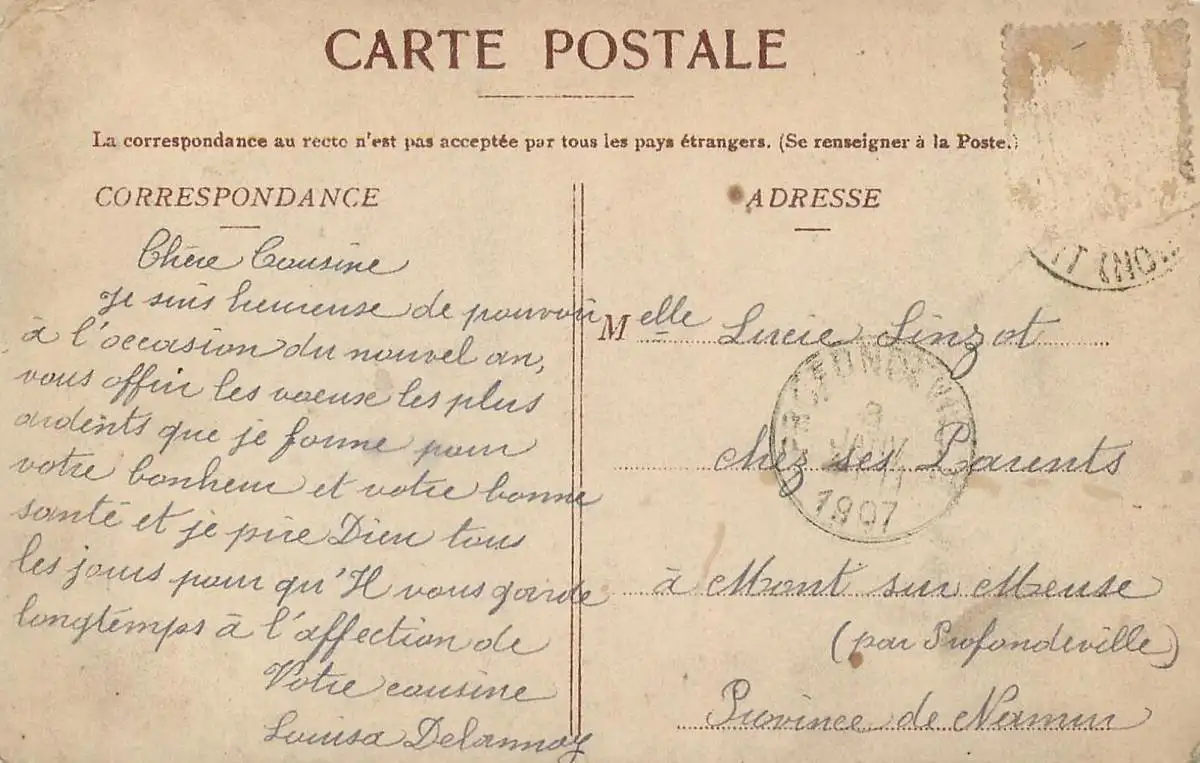 CARTE POSTALE
La correspondance au recto n'est pas acceptée par tous les pays étrangers. (Se renseigner à la Poste.)
CORRESPONDANCE
Chère Cousine
Je suis heureuse de pouvoir
à l'occasion du nouvel an,
vous offrir les vœux les plus
ardents que je forme pour
votre bonheur et votre bonne
santé et je prie Dieu tous
les jours pour qu'Il vous garde
longtemps à l'affection de
Votre cousine
Louisa Delannoy
ADRESSE
Melle Lucie Linzot
chez ses Parents
à Mont sur Meuse
(par Profondeville)
Province de Namur
PROFONDEVILLE
JANV
1907